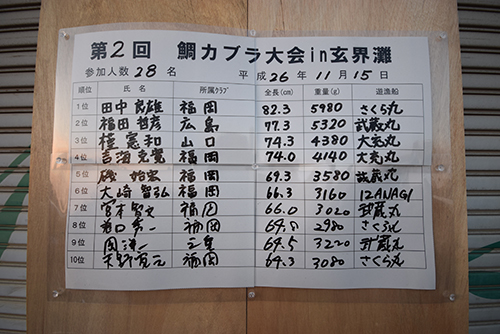 第2回 鯛カブラ大会in玄界灘
参加人数 28 名 平成 26 年 11 月 15 日
順位 氏名 所属クラブ 全長(cm) 重量(g) 遊漁船
1位 田中良雄 福岡 82.3 5980 さくら丸
2位 福田哲彦 広島 77.3 5320 武蔵丸
3位 憲和 山口 74.3 4380 大売丸
4位 吉海 福岡 74.0 4140 大売丸
5位 磯 福岡 69.3 3580 武蔵丸
6位 大崎智弘 福岡 66.3 3160 IZANAGI
7位 宮本 福岡 66.0 3020 武蔵丸
8位 福岡 64.8 2980 さくら丸
9位 64.5 3220 武蔵丸
10位 天野寛元 福岡 64.3 3080 さくら丸